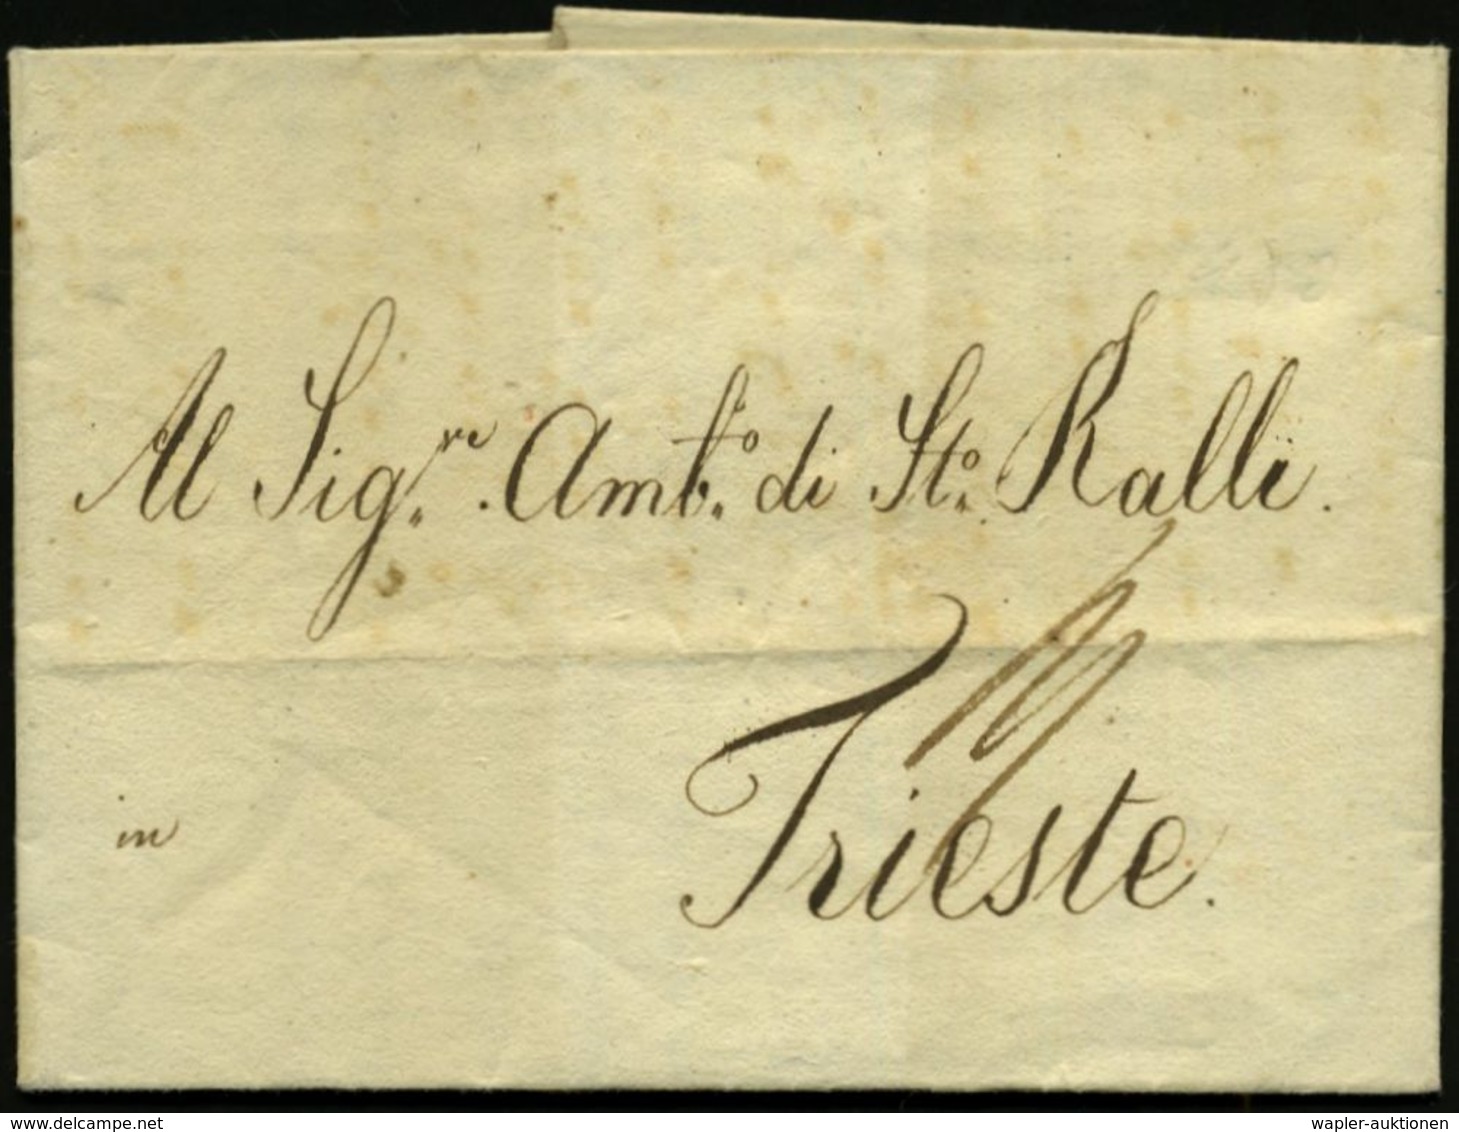 Al Sig.re Amb.o di St.o Ralli.
in Trieste.
delcampe.net
wapler-auktionen